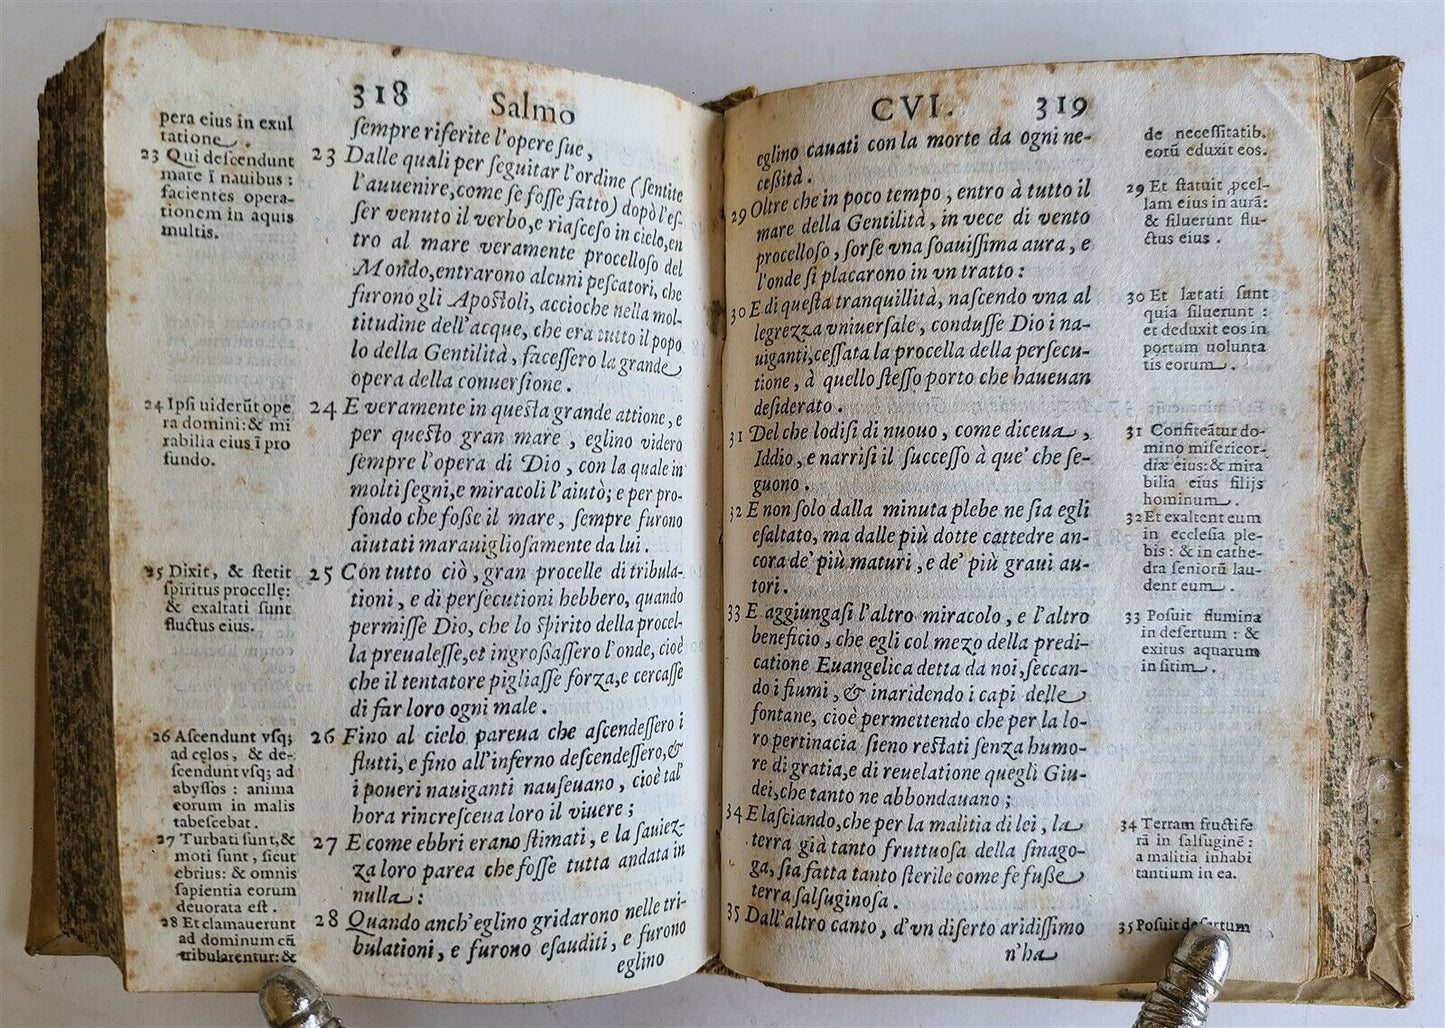 318
Salmo
pera eius in exul
tatione.
23 Qui deſcendunt
mare ī nauibus:
facientes opera-
tionem in aquis
multis.
24 Ipſi uiderūt ope
ra domini: & mi
rabilia eius ī pro
fundo.
25 Dixit, & ſtetit
ſpiritus procellę:
& exaltati ſunt
fluctus eius.
26 Aſcendunt vſq;
ad cęlos, & de-
ſcendunt vſq; ad
abyſſos: anima
eorum in malis
tabeſcebat.
27 Turbati ſunt, &
moti ſunt, ſicut
ebrius: & omnis
ſapientia eorum
deuorata eſt.
28 Et clamauerunt
ad dominum cū
tribularentur: &
ſempre riferite l'opere ſue,
23 Dalle quali per ſeguitar l'ordine (ſentite
l'auuenire, come ſe foſſe fatto) dopò l'eſ-
ſer venuto il verbo, e riaſceſo in cielo, en
tro al mare veramente procelloſo del
Mondo, entrarono alcuni peſcatori, che
furono gli Apoſtoli, accioche nella mol-
titudine dell'acque, che era tutto il popo
lo della Gentilità, faceſſero la grande
opera della conuerſione.
24 E veramente in queſta grande attione, e
per queſto gran mare, eglino videro
ſempre l'opera di Dio, con la quale in
molti ſegni, e miracoli l'aiutò; e per pro-
fondo che foſſe il mare, ſempre furono
aiutati marauiglioſamente da lui.
25 Con tutto ciò, gran procelle di tribula-
tioni, e di perſecutioni hebbero, quando
permiſſe Dio, che lo ſpirito della procel-
la preualeſſe, et ingroſſaſſero l'onde, cioè
che il tentatore pigliaſſe forza, e cercaſſe
di far loro ogni male.
26 Fino al cielo pareua che aſcendeſſero i
flutti, e fino all'inferno deſcendeſſero, &
i poueri nauiganti nauſeuano, cioè tal'
hora rincreſceua loro il viuere;
27 E come ebbri erano ſtimati, e la ſauiez-
za loro parea che foſſe tutta andata in
nulla:
28 Quando anch'eglino gridarono nelle tri-
bulationi, e furono eſauditi, e furono
eglino
CVI.
319
eglino cauati con la morte da ogni ne-
ceſſità.
29 Oltre che in poco tempo, entro à tutto il
mare della Gentilità, in vece di vento
procelloſo, ſorſe vna ſoauiſſima aura, e
l'onde ſi placarono in vn tratto:
30 E di queſta tranquillità, naſcendo vna al
legrezza vniuerſale, conduſſe Dio i na-
uiganti, ceſſata la procella della perſecu-
tione, à quello ſteſſo porto che haueuan
deſiderato.
31 Del che lodiſi di nuouo, come diceua,
Iddio, e narriſi il ſucceſſo à que' che ſe-
guono.
32 E non ſolo dalla minuta plebe ne ſia egli
eſaltato, ma dalle più dotte cattedre an-
cora de' più maturi, e de' più graui au-
tori.
33 E aggiungaſi l'altro miracolo, e l'altro
beneficio, che egli col mezo della predi-
catione Euangelica detta da noi, ſeccan-
do i fiumi, & inaridendo i capi delle
fontane, cioè permettendo che per la lo-
ro pertinacia ſieno reſtati ſenza humo-
re di gratia, e di reuelatione quegli Giu-
dei, che tanto ne abbondauano;
34 E laſciando, che per la malitia di lei, la
terra già tanto fruttuoſa della ſinago-
ga, ſia fatta tanto ſterile come ſe fuſſe
terra ſalſuginoſa.
35 Dall'altro canto, d'vn diſerto aridiſſimo
n'ha
de neceſſitatib.
eorū eduxit eos.
29 Et ſtatuit ꝓcel-
lam eius in aurā:
& ſiluerunt flu-
ctus eius.
30 Et lætati ſunt
quia ſiluerunt:
et deduxit eos in
portum uolunta
tis eorum.
31 Confiteātur do-
mino miſericor-
diæ eius: & mira
bilia eius filijs
hominum.
32 Et exaltent eum
in eccleſia ple-
bis: & in cathe-
dra ſeniorū lau-
dent eum.
33 Poſuit flumina
in deſertum: &
exitus aquarum
in ſitim.
34 Terram fructife
rā in ſalſuginē:
a malitia inhabi
tantium in ea.
35 Poſuit deſertum